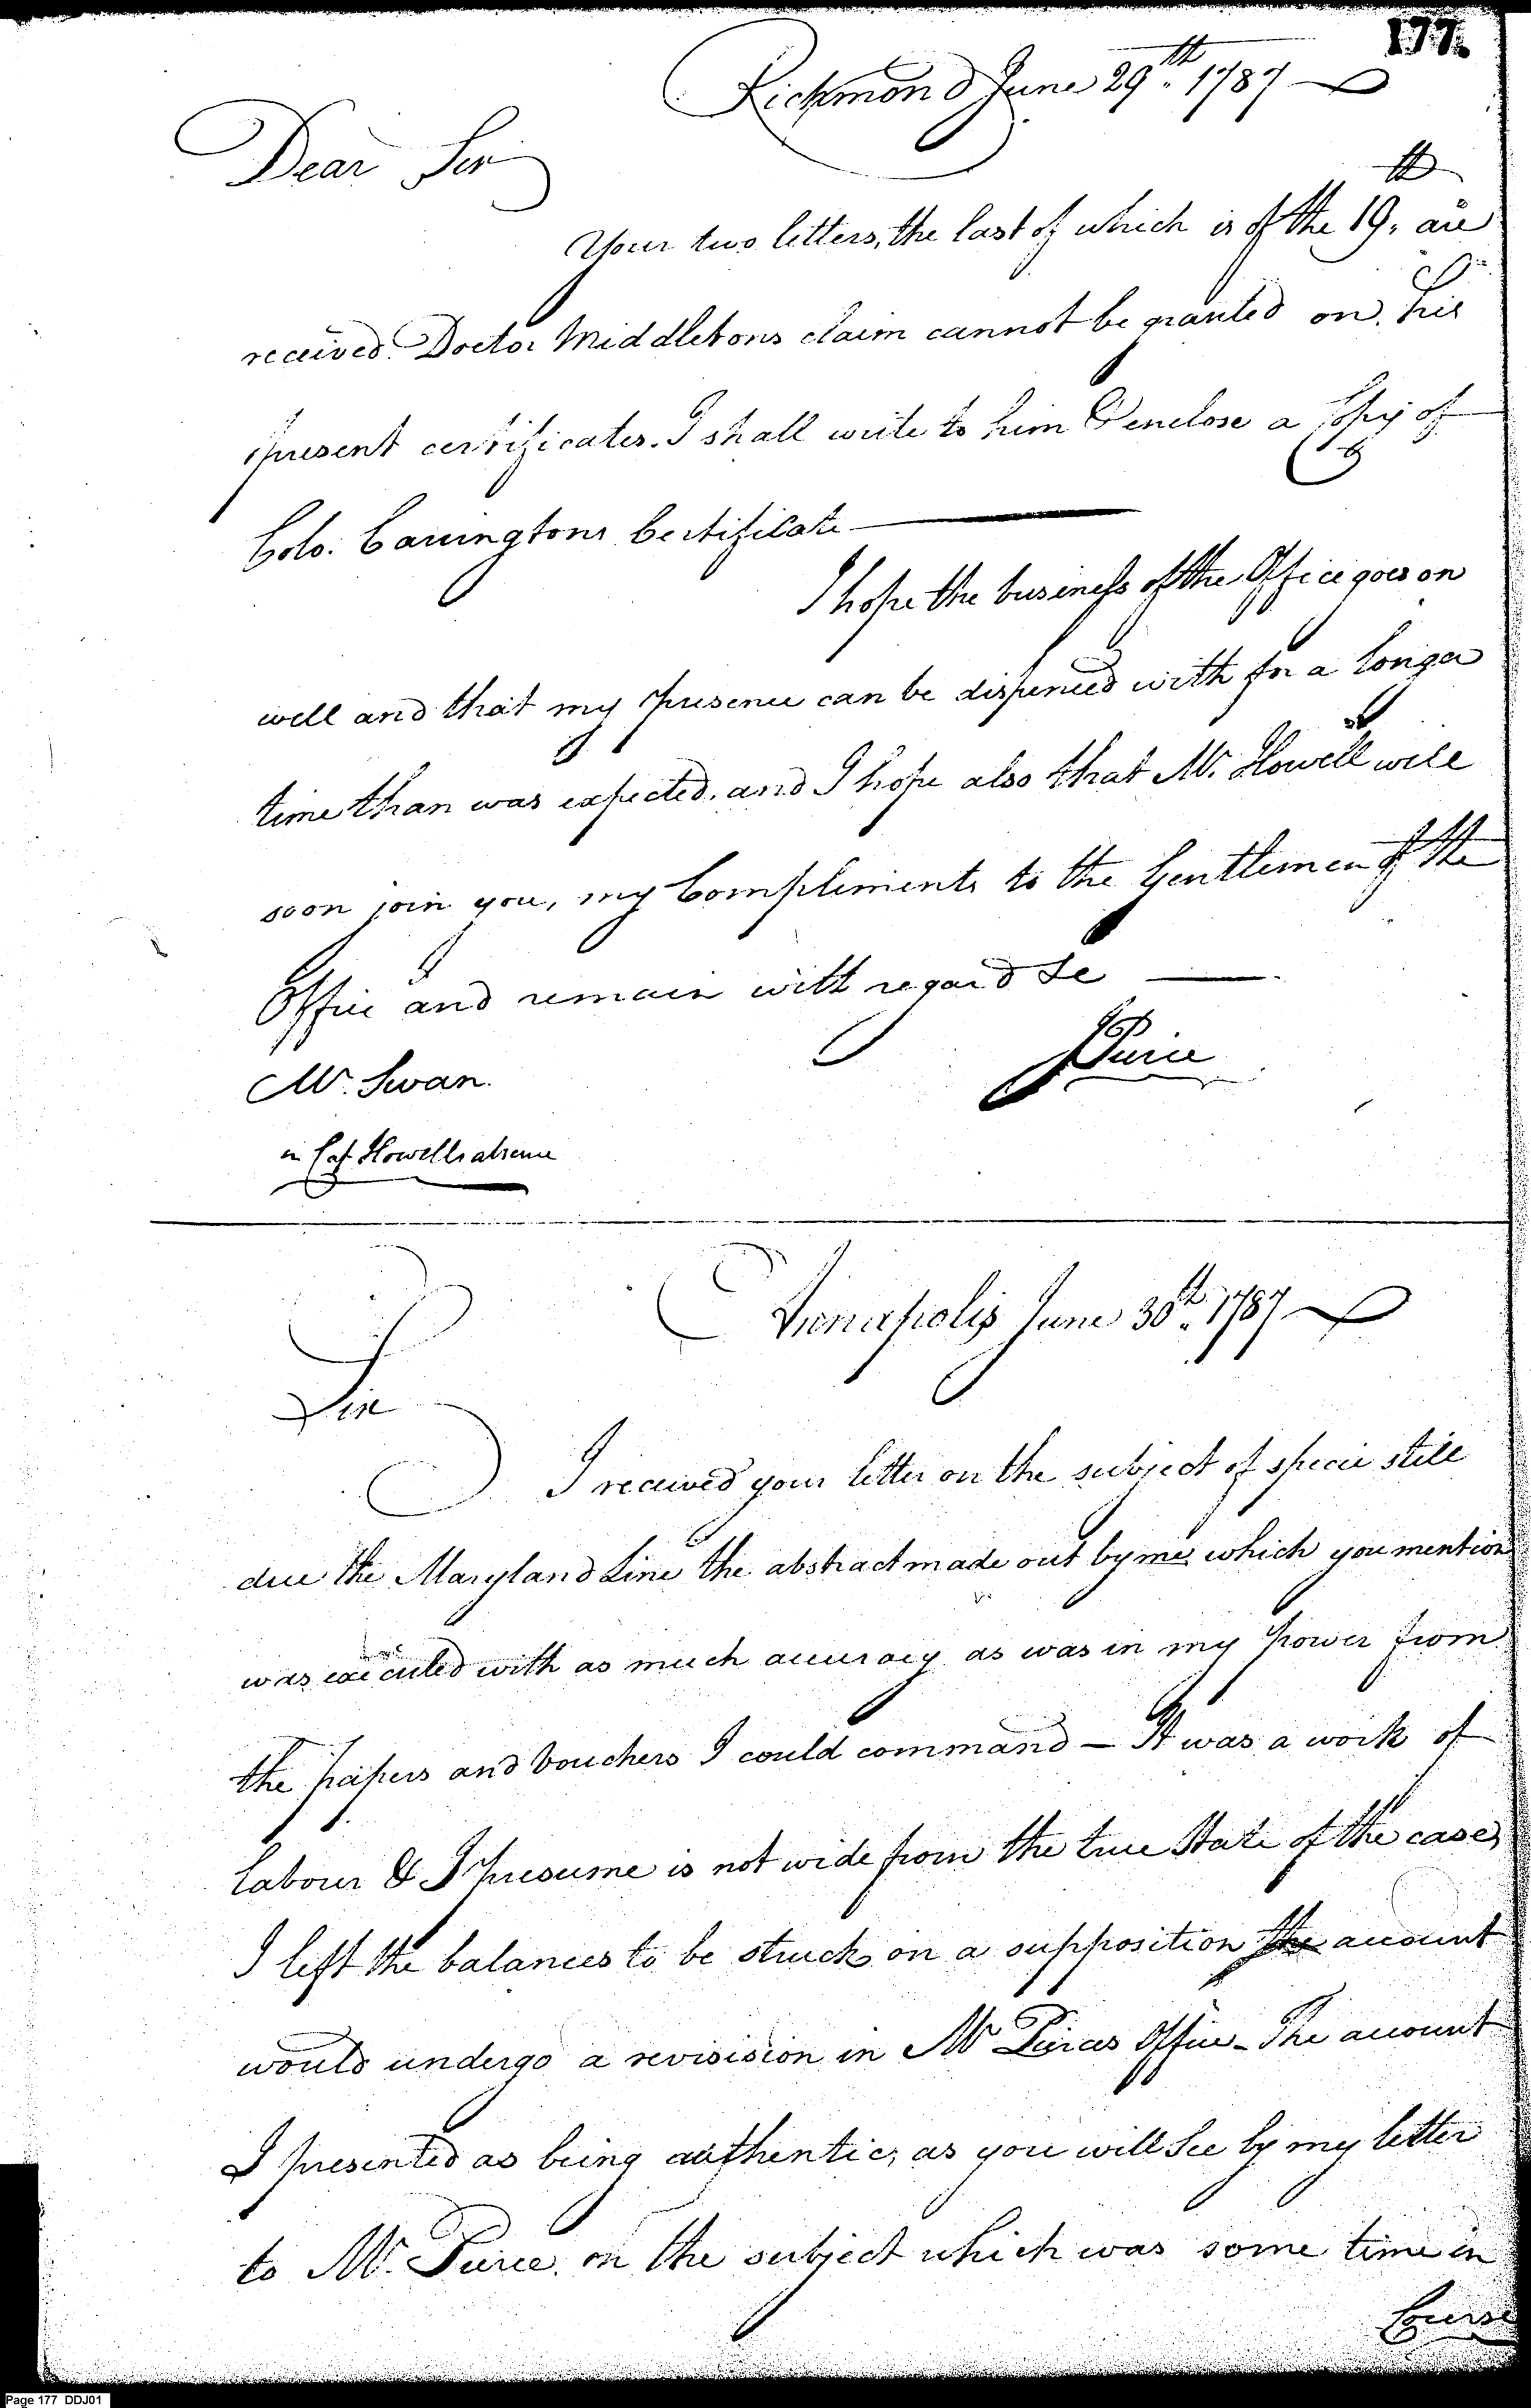 177.
Richmond June 29th. 1787
Dear Sir
Your two letters, the last of which is of the 19th. are
received. Doctor Middletons claim cannot be granted on his
present certificates. I shall write to him & enclose a Copy of
Colo. Carringtons Certificate
I hope the business of the Office goes on
well and that my presence can be dispenced with for a longer
time than was expected. and I hope also that Mr. Howell will
soon join you, my Compliments to the Gentlemen of the
Office and remain with regard &c
JPierce
Mr. Swan.
in Cap Howells absence
Annapolis June 30th. 1787
Sir
I received your letter on the subject of specie still
due the Maryland Line the abstract made out by me which you mention
was executed with as much accuracy as was in my power from
the papers and Vouchers I could command — It was a work of
labour & I presume is not wide from the true State of the case,
I left the balances to be struck on a supposition the account
would undergo a revisision in Mr Pierces Office - The account
I presented as being authentic, as you will See by my letter
to Mr. Pierce. on the subject which was some time in
Course
Page 177 DDJ01